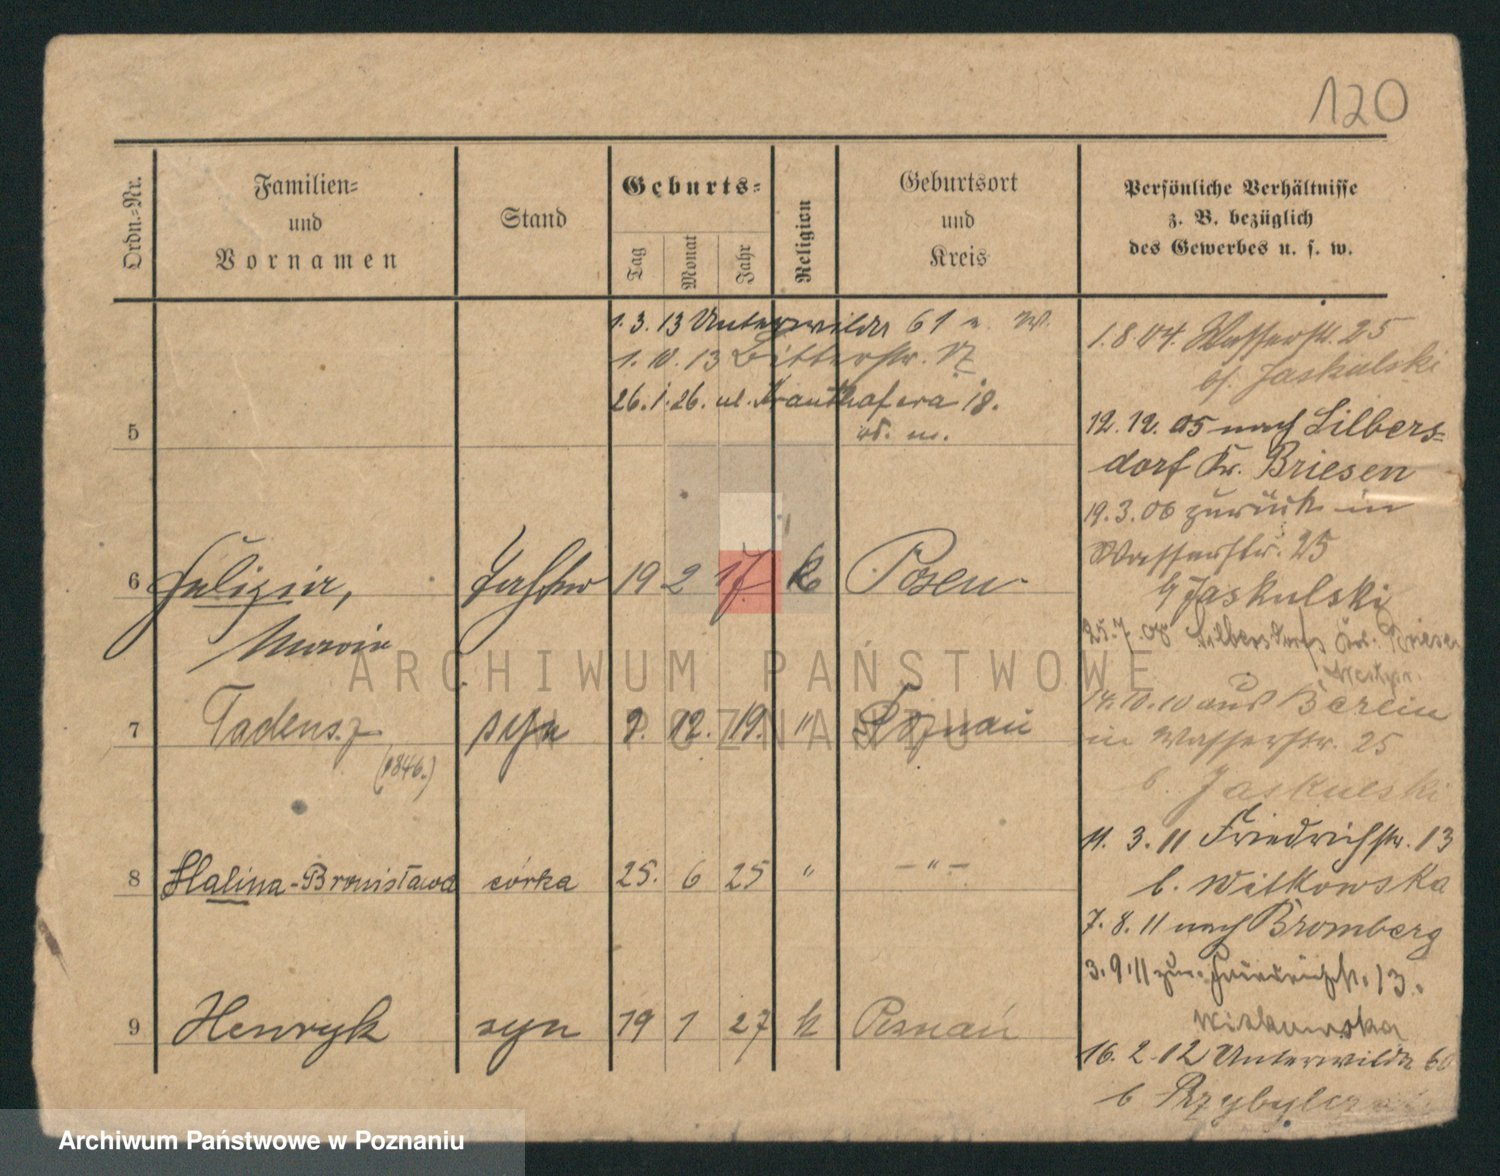 120
Ordn.=Nr.
Familien=
und
Vornamen
Stand
Geburts=
Tag
Monat
Jahr
Religion
Geburtsort
und
Kreis
Persönliche Verhältnisse
z. B. bezüglich
des Gewerbes u. s. w.
1.3.13 Unterwilda 61 w.
1.10.13 Bitterstr. 17
26.1.26. ul. Kranthofera 18.
5
6 Felizia, Tochter 19 2 17 k Posen
Maria
7 Tadeusz syn 9. 12. 19. " Poznań
(1846.)
8 Halina-Bronisława córka 25. 6 25 " — " —
9 Henryk syn 19 1 27 k Poznań
1.8.04. Wasserstr. 25
b/. Jaskulski
12.12.05 nach Silbers=
dorf Kr. Briesen
19.3.06 zurück in
Wasserstr. 25
b/ Jaskulski
25.7.08 Silbersdorf Kr. Briesen
14.10.10 aus Berlin
in Wasserstr. 25
b. Jaskulski
11.3.11 Friedrichstr. 13
b. Witkowska
7.8.11 nach Bromberg
3.9.11 zur. Friedrichstr. 13.
Witkowska
16.2.12 Unterwilda 60
b
ARCHIWUM PAŃSTWOWE
W POZNANIU
Archiwum Państwowe w Poznaniu